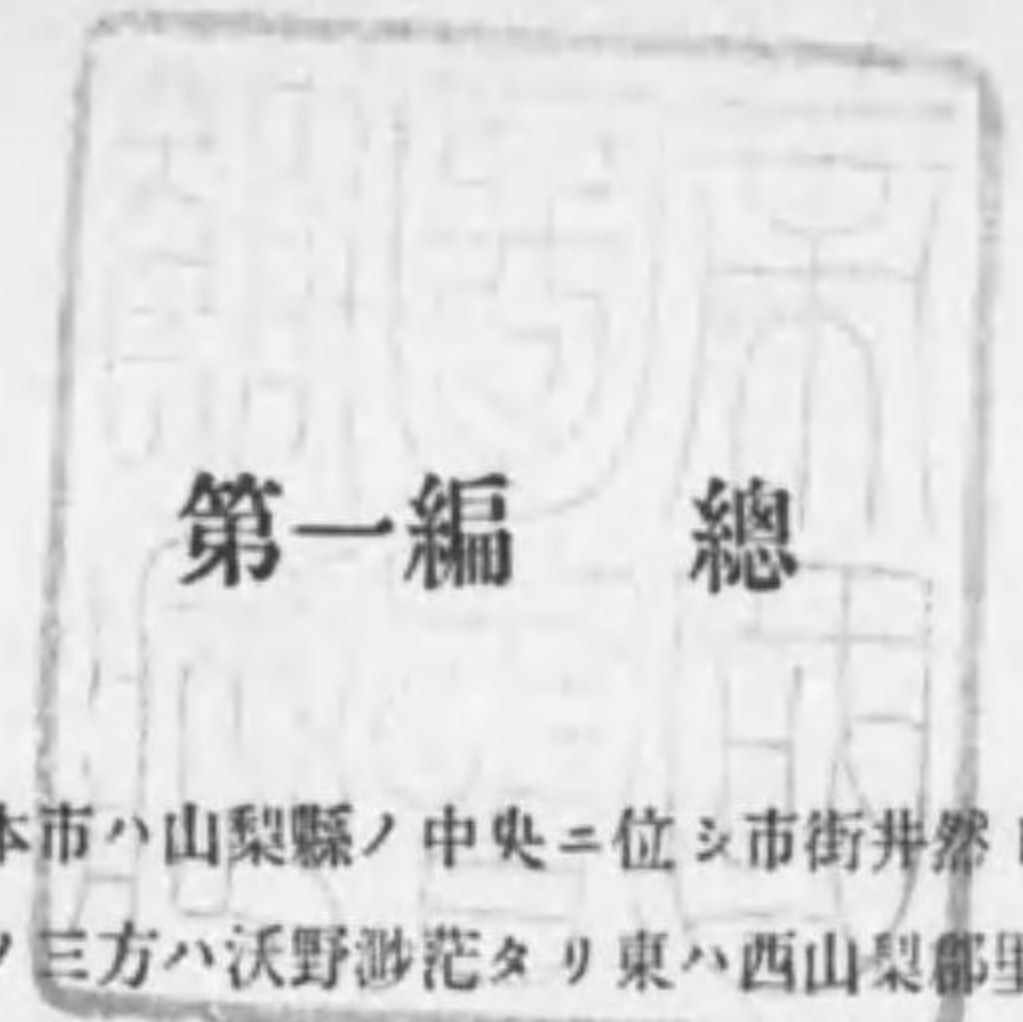 第一編 總
本市ハ山梨縣ノ中央ニ位シ市街井然
ノ三方ハ沃野渺茫タリ東ハ西山梨郡里